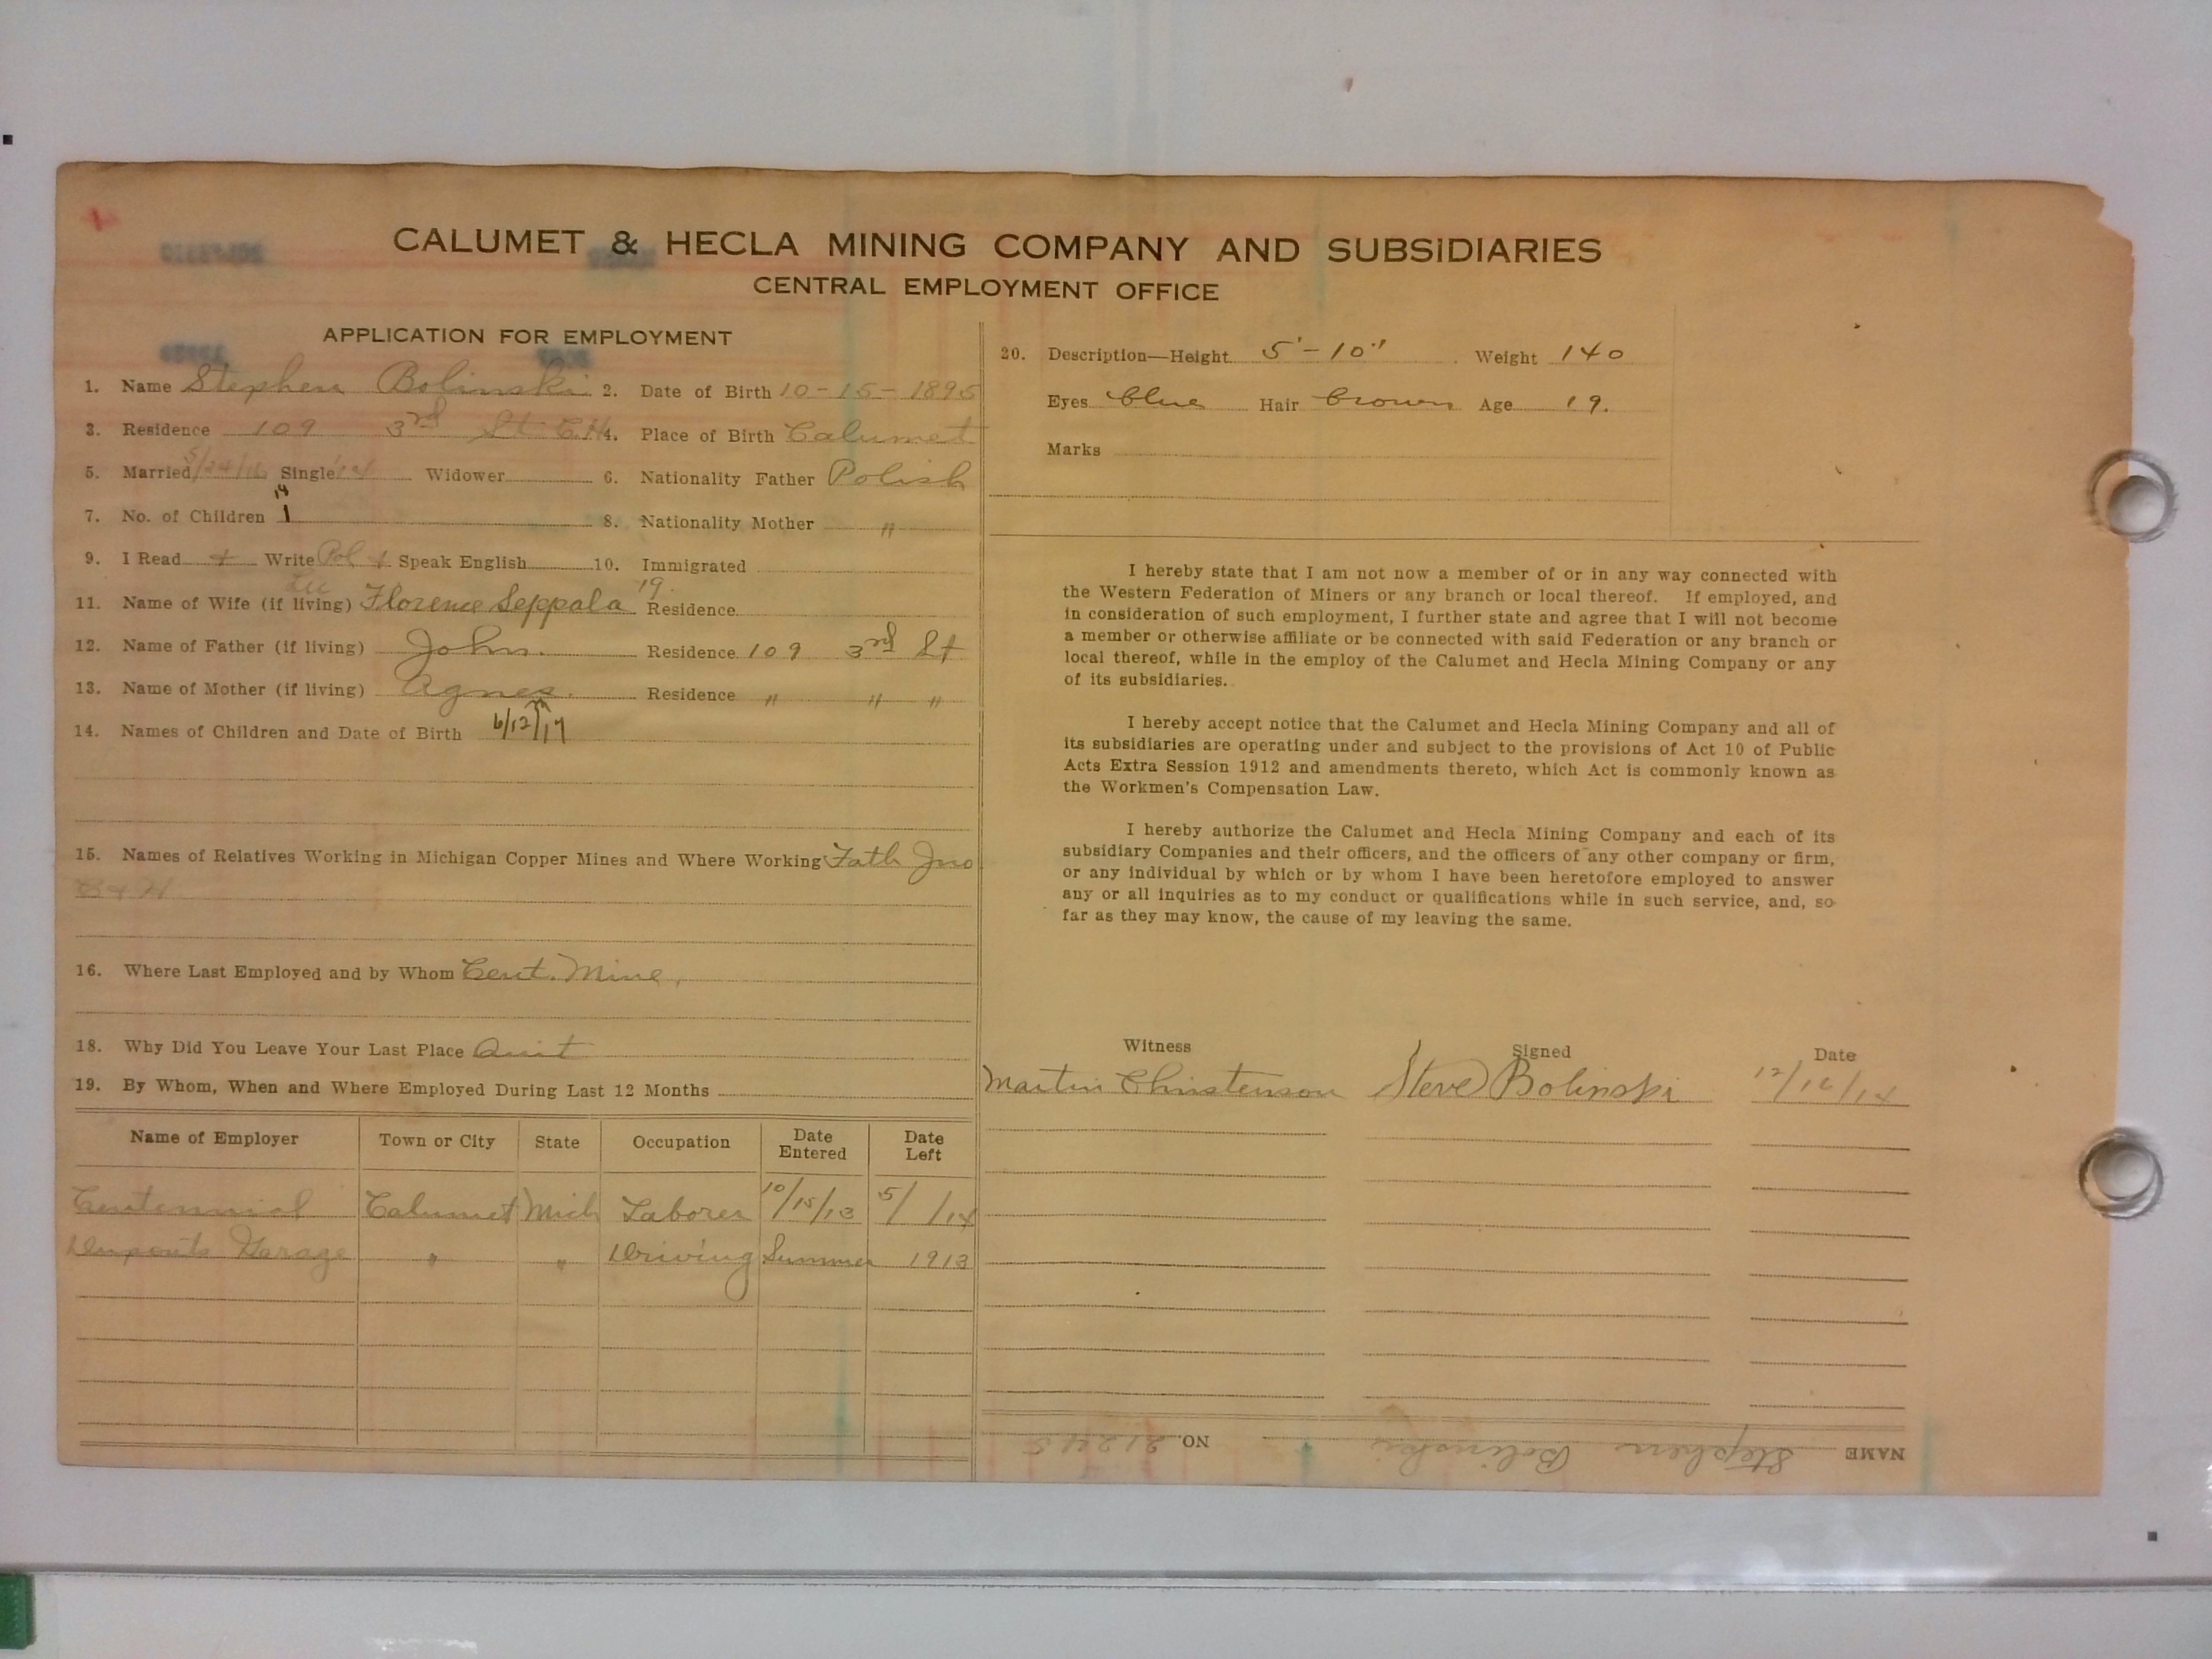 CALUMET & HECLA MINING COMPANY AND SUBSIDIARIES
CENTRAL EMPLOYMENT OFFICE
APPLICATION FOR EMPLOYMENT
1. Name Stephen Bolinski 2. Date of Birth 10-15-1895
3. Residence 109 3rd St 4. Place of Birth Calumet
5. Married 5/24/16 Single 14 Widower 6. Nationality Father Polish
7. No. of Children 1 8. Nationality Mother "
9. I Read + Write Pol + Speak English 10. Immigrated
11. Name of Wife (if living) Florence Seppala 19. Residence
12. Name of Father (if living) John. Residence 109 3rd St
13. Name of Mother (if living) Agnes. Residence " " "
14. Names of Children and Date of Birth 6/12/17
15. Names of Relatives Working in Michigan Copper Mines and Where Working Fath Jno
C & H
16. Where Last Employed and by Whom Cent. Mine,
18. Why Did You Leave Your Last Place Quit
19. By Whom, When and Where Employed During Last 12 Months
Name of Employer Town or City State Occupation Date Entered Date Left
Centennial Calumet Mich Laborer 10/15/13 5/ /14
Garage " " Driving Summer 1913
20. Description—Height 5'-10" Weight 140
Eyes blue Hair brown Age 19.
Marks
I hereby state that I am not now a member of or in any way connected with
the Western Federation of Miners or any branch or local thereof. If employed, and
in consideration of such employment, I further state and agree that I will not become
a member or otherwise affiliate or be connected with said Federation or any branch or
local thereof, while in the employ of the Calumet and Hecla Mining Company or any
of its subsidiaries.
I hereby accept notice that the Calumet and Hecla Mining Company and all of
its subsidiaries are operating under and subject to the provisions of Act 10 of Public
Acts Extra Session 1912 and amendments thereto, which Act is commonly known as
the Workmen's Compensation Law.
I hereby authorize the Calumet and Hecla Mining Company and each of its
subsidiary Companies and their officers, and the officers of any other company or firm,
or any individual by which or by whom I have been heretofore employed to answer
any or all inquiries as to my conduct or qualifications while in such service, and, so
far as they may know, the cause of my leaving the same.
Witness Signed Date
Martin Christenson Steve Bolinski 12/16/14
NAME Stephen Bolinski NO. 21245